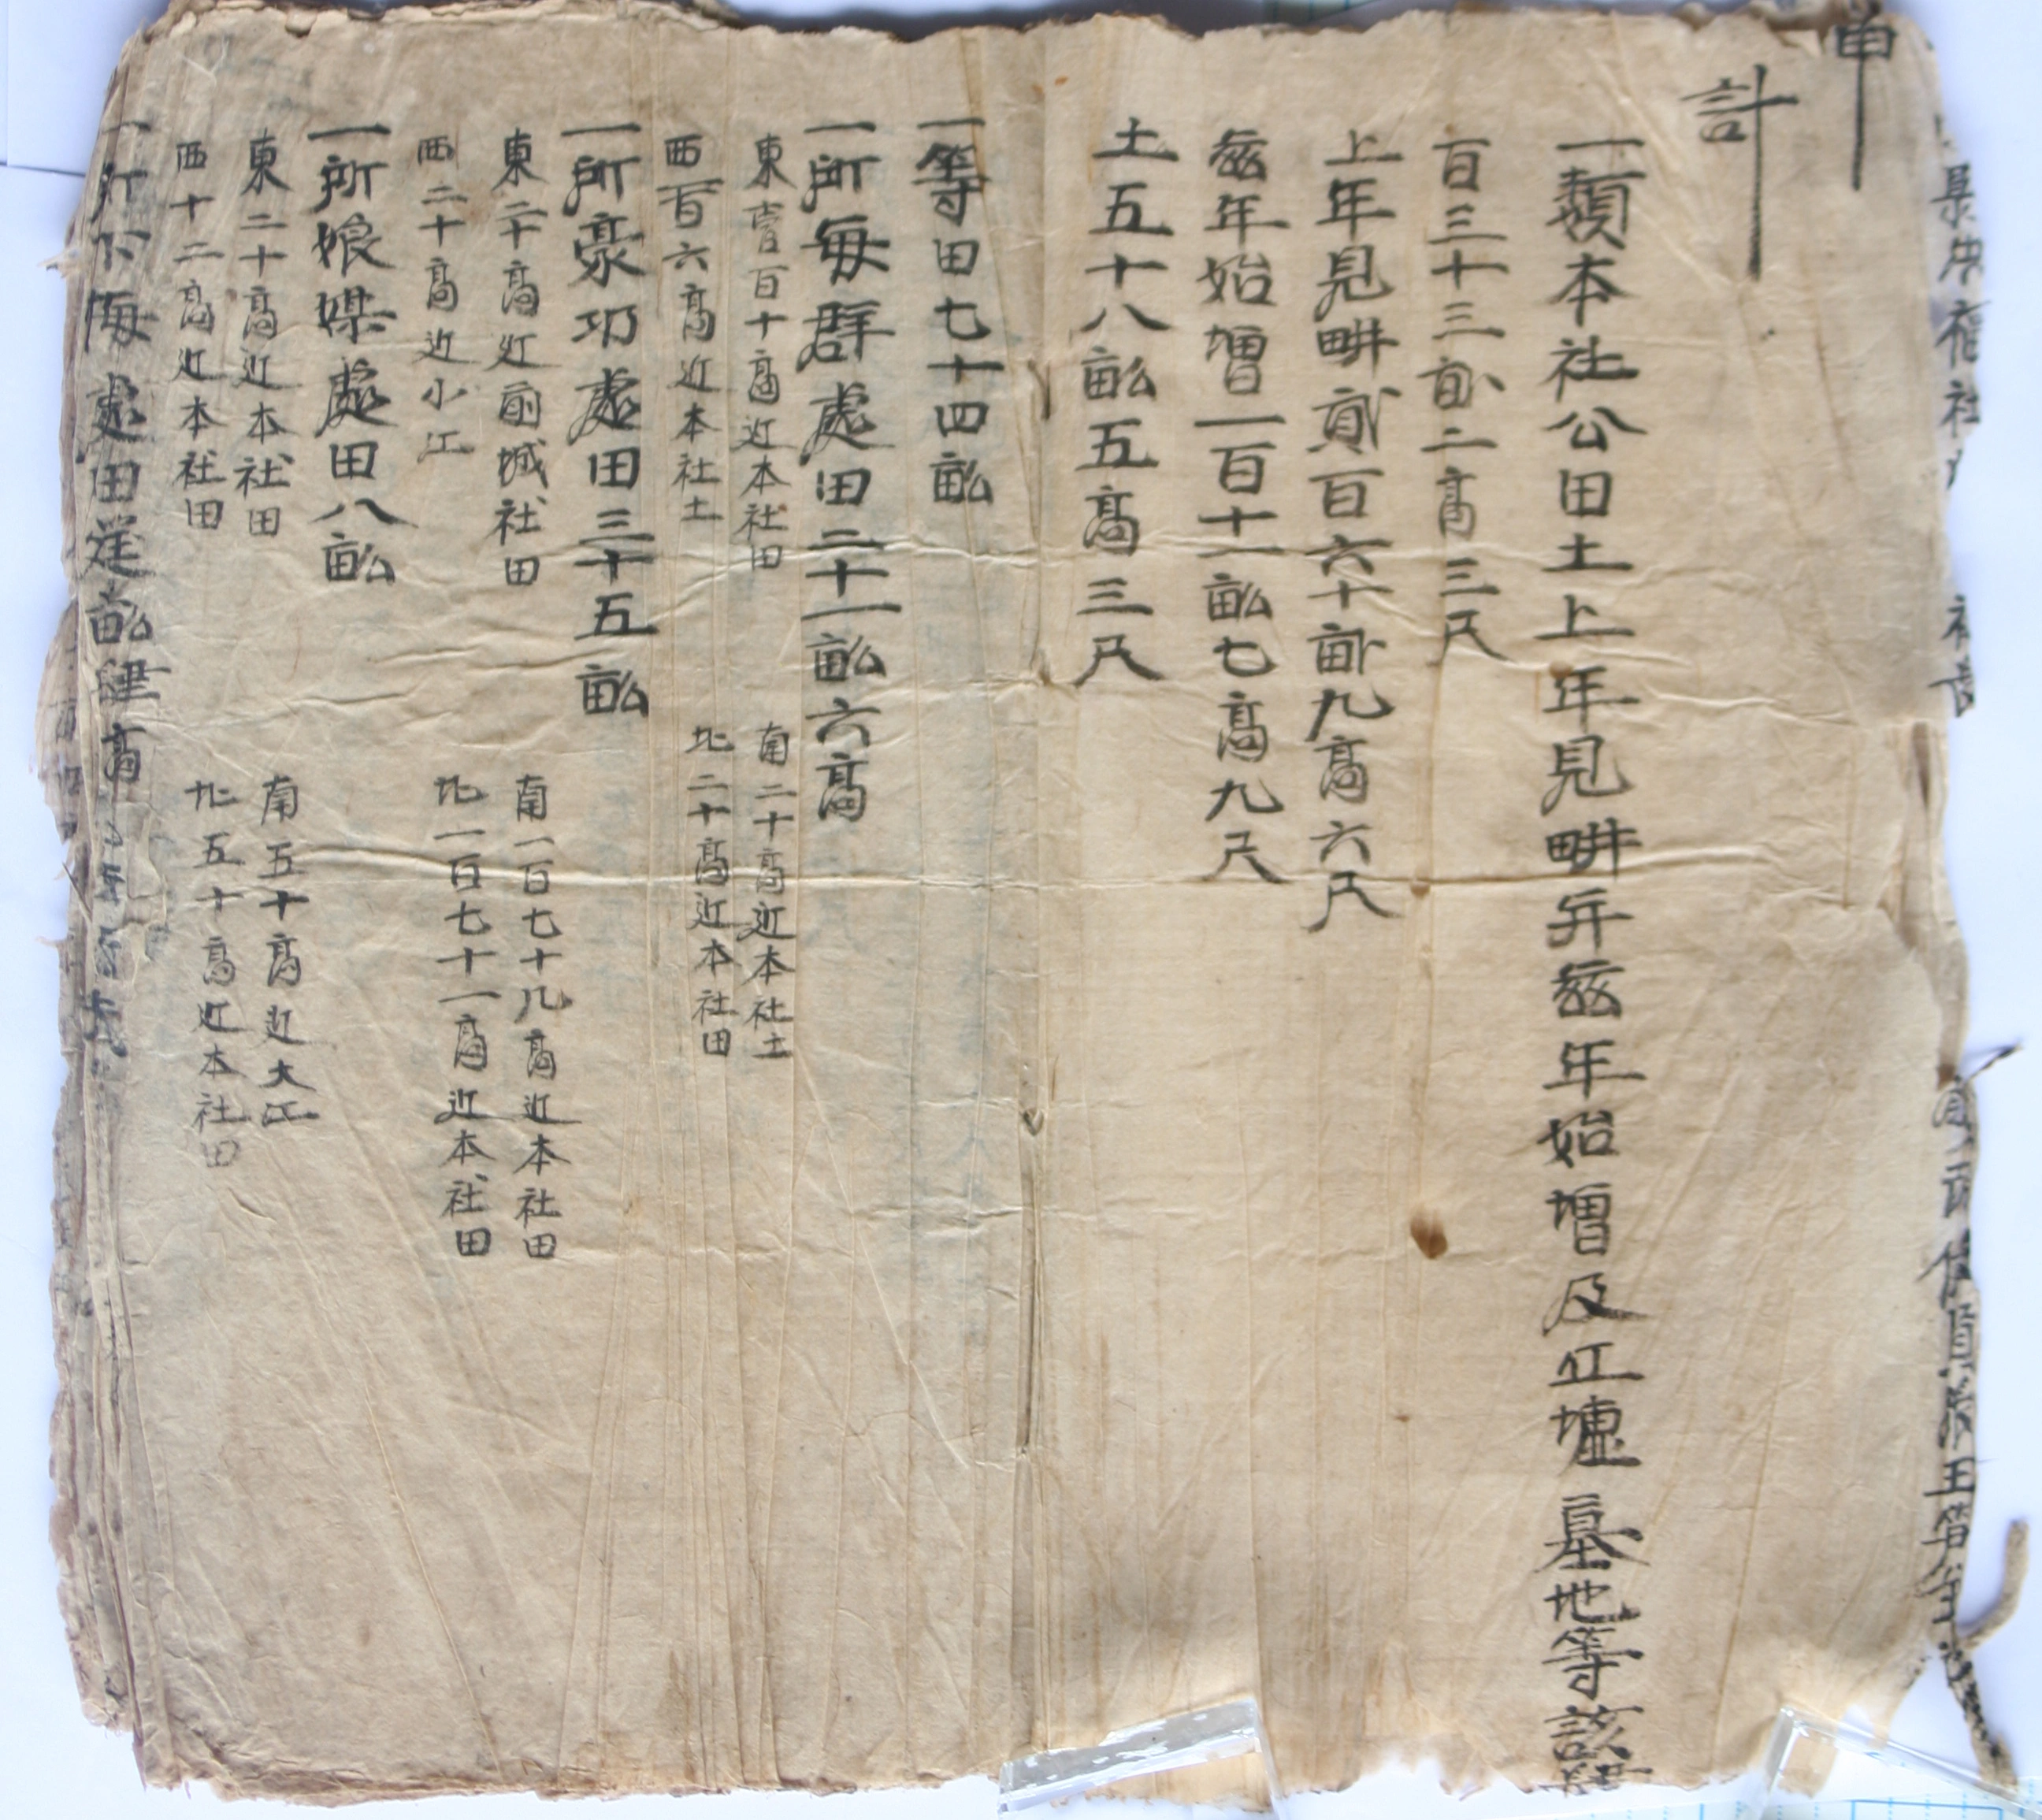 計
一類本社公田土上年見畊并茲年始增及丘墟墓地等該肆
百三十三畝二高三尺
上年見畊貳百六十畝九高六尺
茲年始增一百十一畝七高九尺
土五十八畝五高三尺
一等田七十四畝
一所每群處田二十一畝六高
東壹百十高近本社田
南二十高近本社土
西百六高近本社土
北二十高近本社田
一所豪巧處田三十五畝
東二十高近前城社田
南一百七十八高近本社田
西二十高近小江
北一百七十一高近本社田
一所娘媒處田八畝
東二十高近本社田
南五十高近大江
西十二高近本社田
北五十高近本社田
一所下海處田柒畝肆高